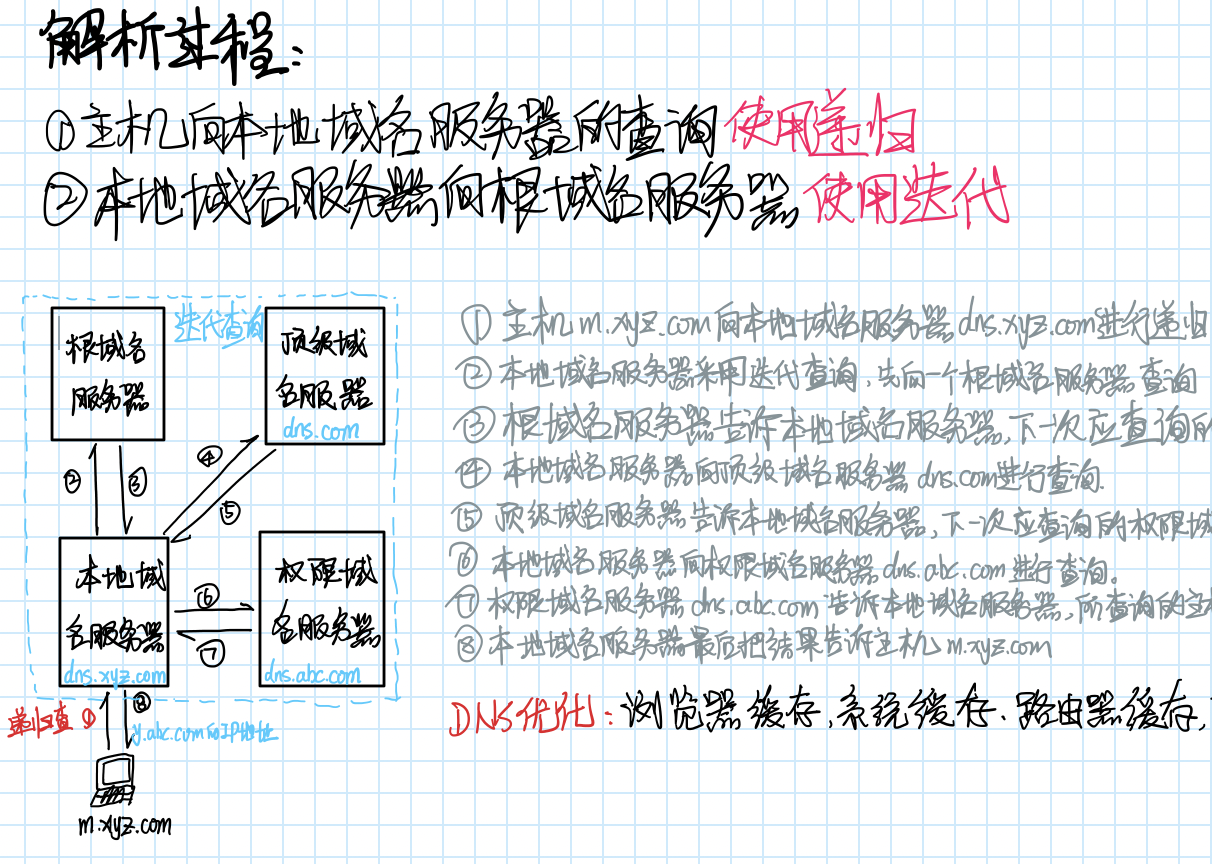 解析过程：
①主机向本地域名服务器的查询使用递归
②本地域名服务器向根域名服务器使用迭代
迭代查询
根域名
服务器
顶级域
名服务器
dns.com
②
③
④
⑤
本地域
名服务器
dns.xyz.com
⑥
⑦
权限域
名服务器
dns.abc.com
递归查①
⑧
y.abc.com的IP地址
m.xyz.com
①主机m.xyz.com向本地域名服务器dns.xyz.com进行递归
②本地域名服务器采用迭代查询，先向一个根域名服务器查询
③根域名服务器告诉本地域名服务器，下一次应查询的
④本地域名服务器向顶级域名服务器dns.com进行查询.
⑤顶级域名服务器告诉本地域名服务器，下一次应查询的权限域
⑥本地域名服务器向权限域名服务器dns.abc.com进行查询。
⑦权限域名服务器dns.abc.com告诉本地域名服务器，所查询的主
⑧本地域名服务器最后把结果告诉主机m.xyz.com
DNS优化：浏览器缓存，系统缓存、路由器缓存，